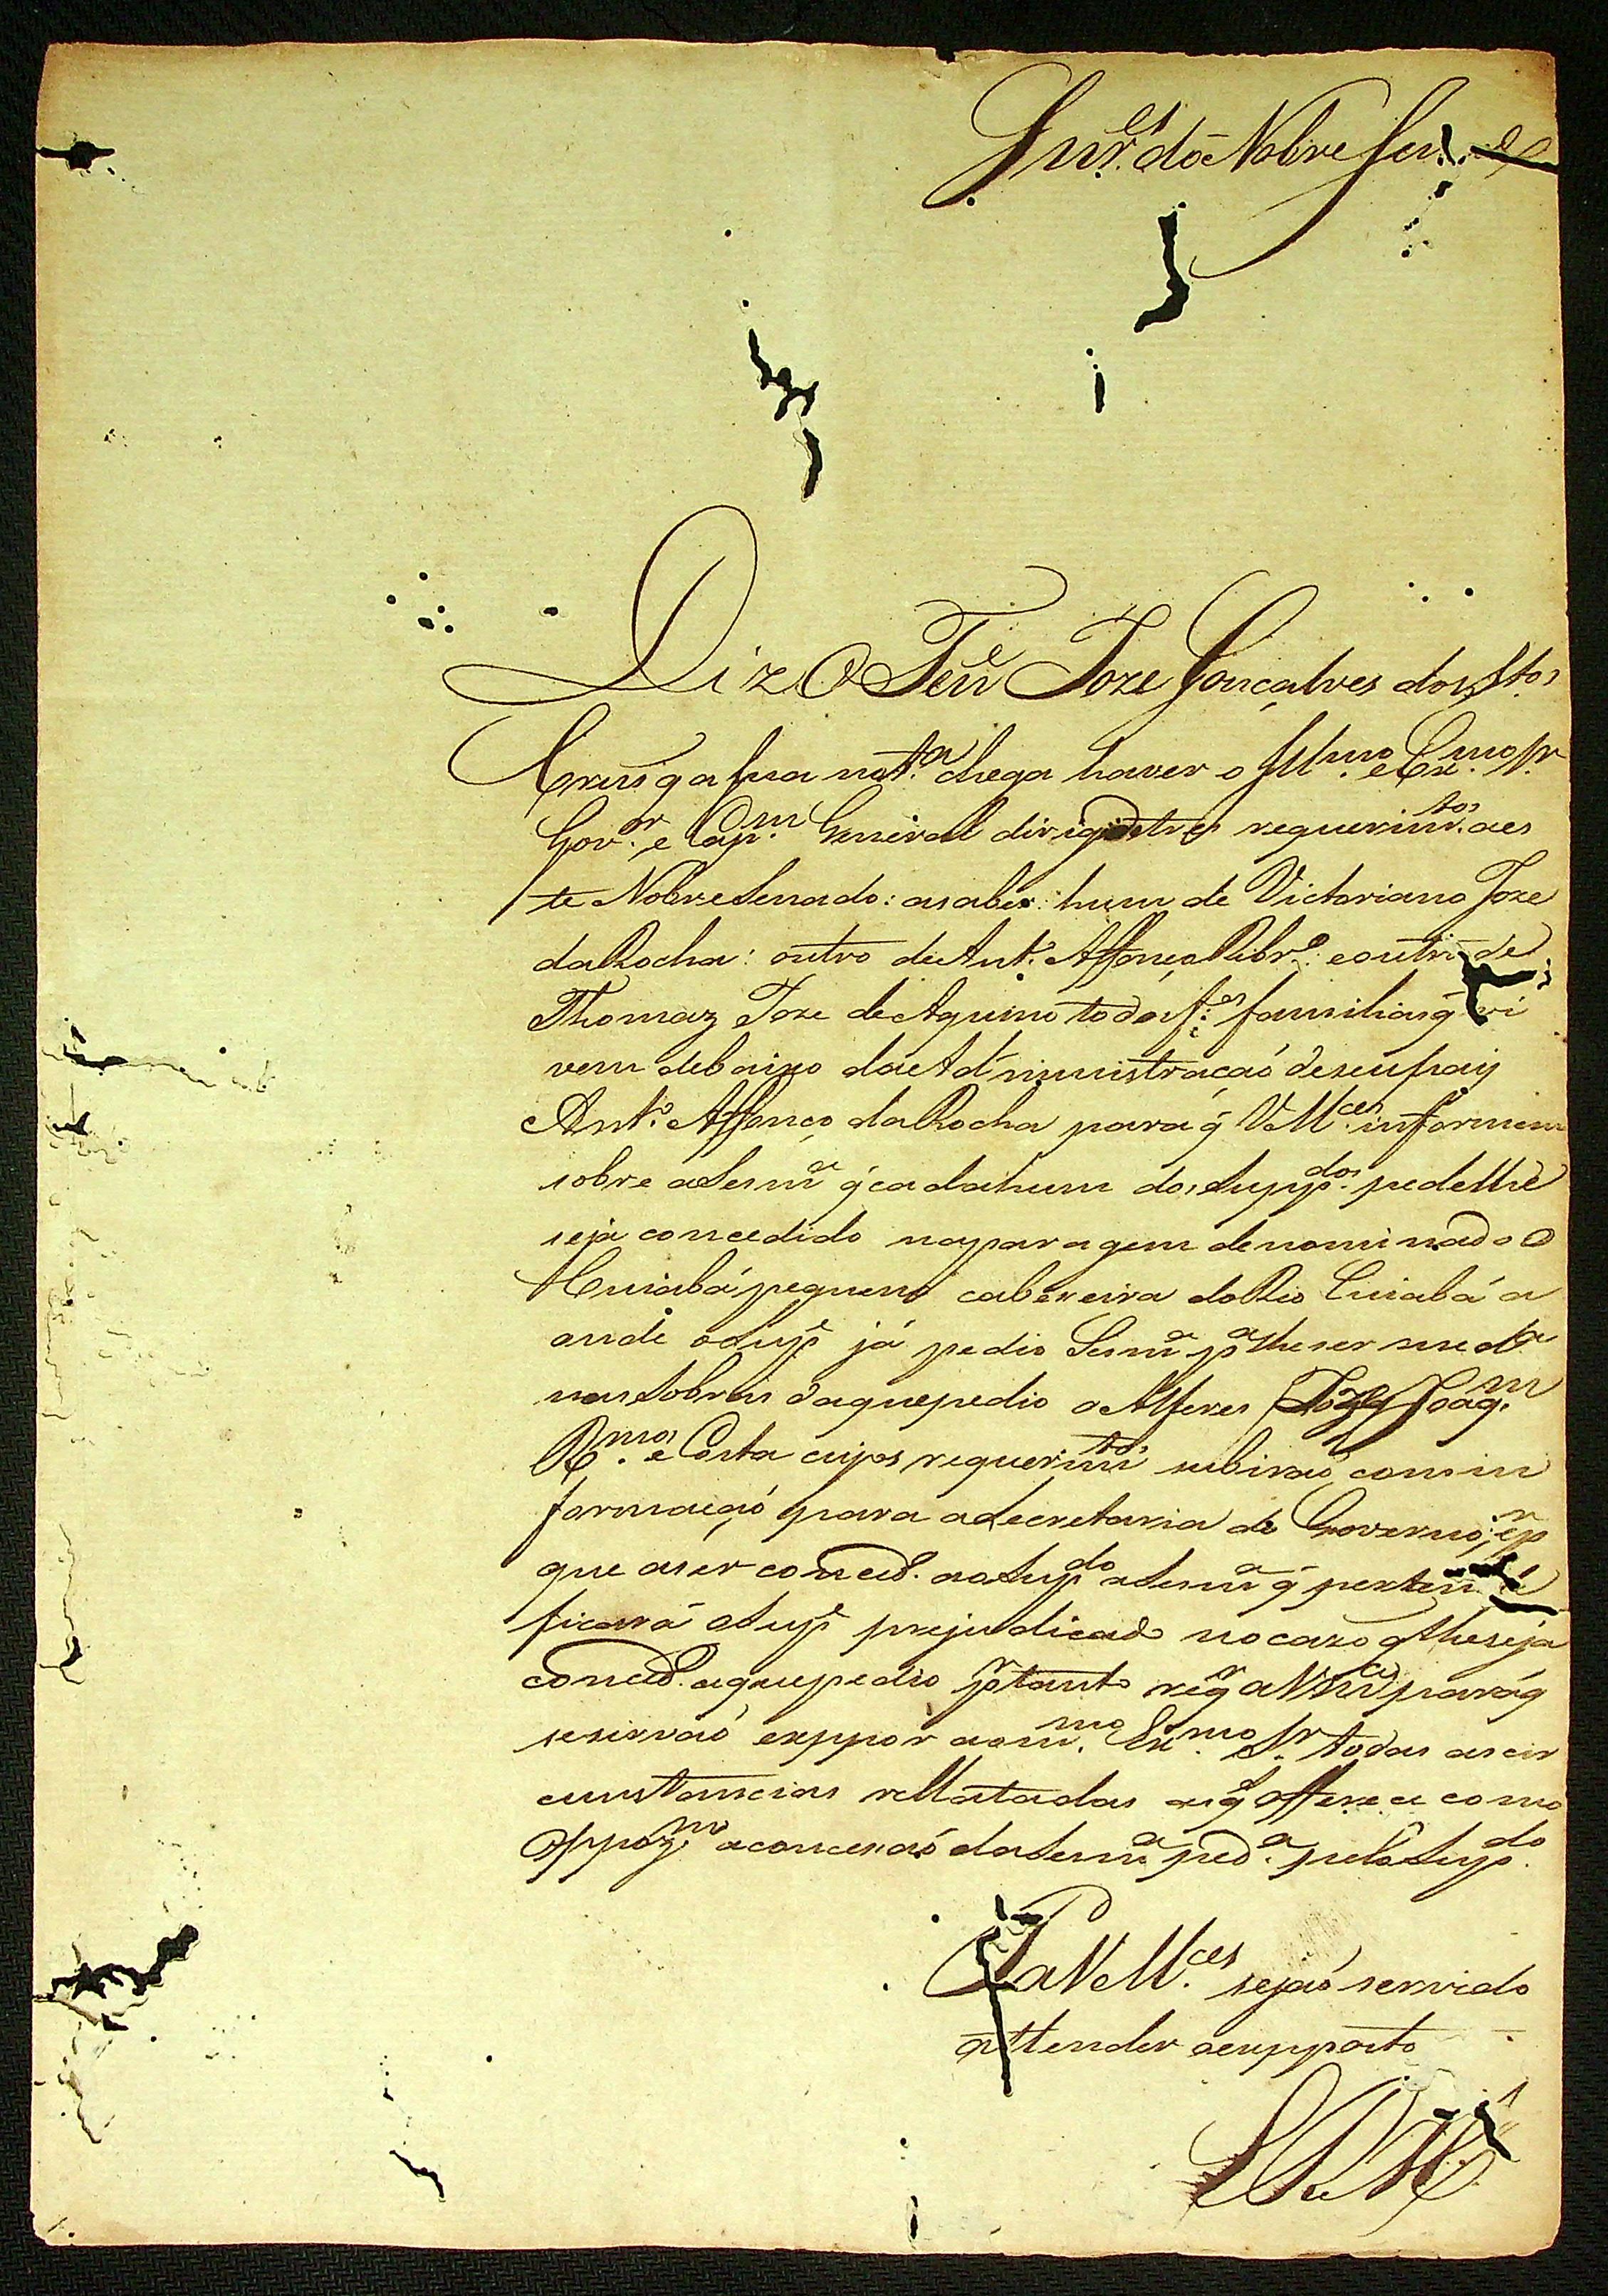 Snr.es do Nobre Sen
Diz O Ten.e Joze Gonçalves dos S.tos
Cruz q a sua not.a chega haver o Ill.mo e Ex.mo Sr
Gov.or e Cap.m General dirigido tres requerim.tos a es
te Nobre Senado: a saber: hum de Victoriano Joze
da Rocha: outro de Ant.o Affonço Ribr.o: e outro de
Thomaz Joze de Aquino todos f.es familias q vi
vem debaixo da Adminnistracaó de seu pay
Ant.o Affonço da Rocha para q̃ V.M.ces informem
sobre a Sesm.a q̃ cada hum dos Supp.dos pede lhe
seja concedido na paragem denominado O
Cuiabá pequeno cabeceira do Rio Cuiabá a
onde o Sup.e já pedio Sesm.a p.a lhe ser med.a
nas Sobras da que pedio o Alferes Joze Joaq.m
R.mos e Costa cujos requerim.tos subiraó com in
formaçaó para a Secretaria do Governo; e p.r
que a ser conced. ao Sup.do a Sesm.a q̃ perten
ficará o Sup.e prejudicado no cazo q̃ lhe seja
conced. a que pedio p.r tanto req.r a V.M.ces para q̃
se sirvaó exppor ao m.mo Ex.mo Sr. todas as cir
cunstancias rellatadas a q̃ offerece como
oppoz.m a concessaó da Sesm.a ped.a pelo Sup.do
P a V.M.ces sejaó servido
attender o expposto
E R M